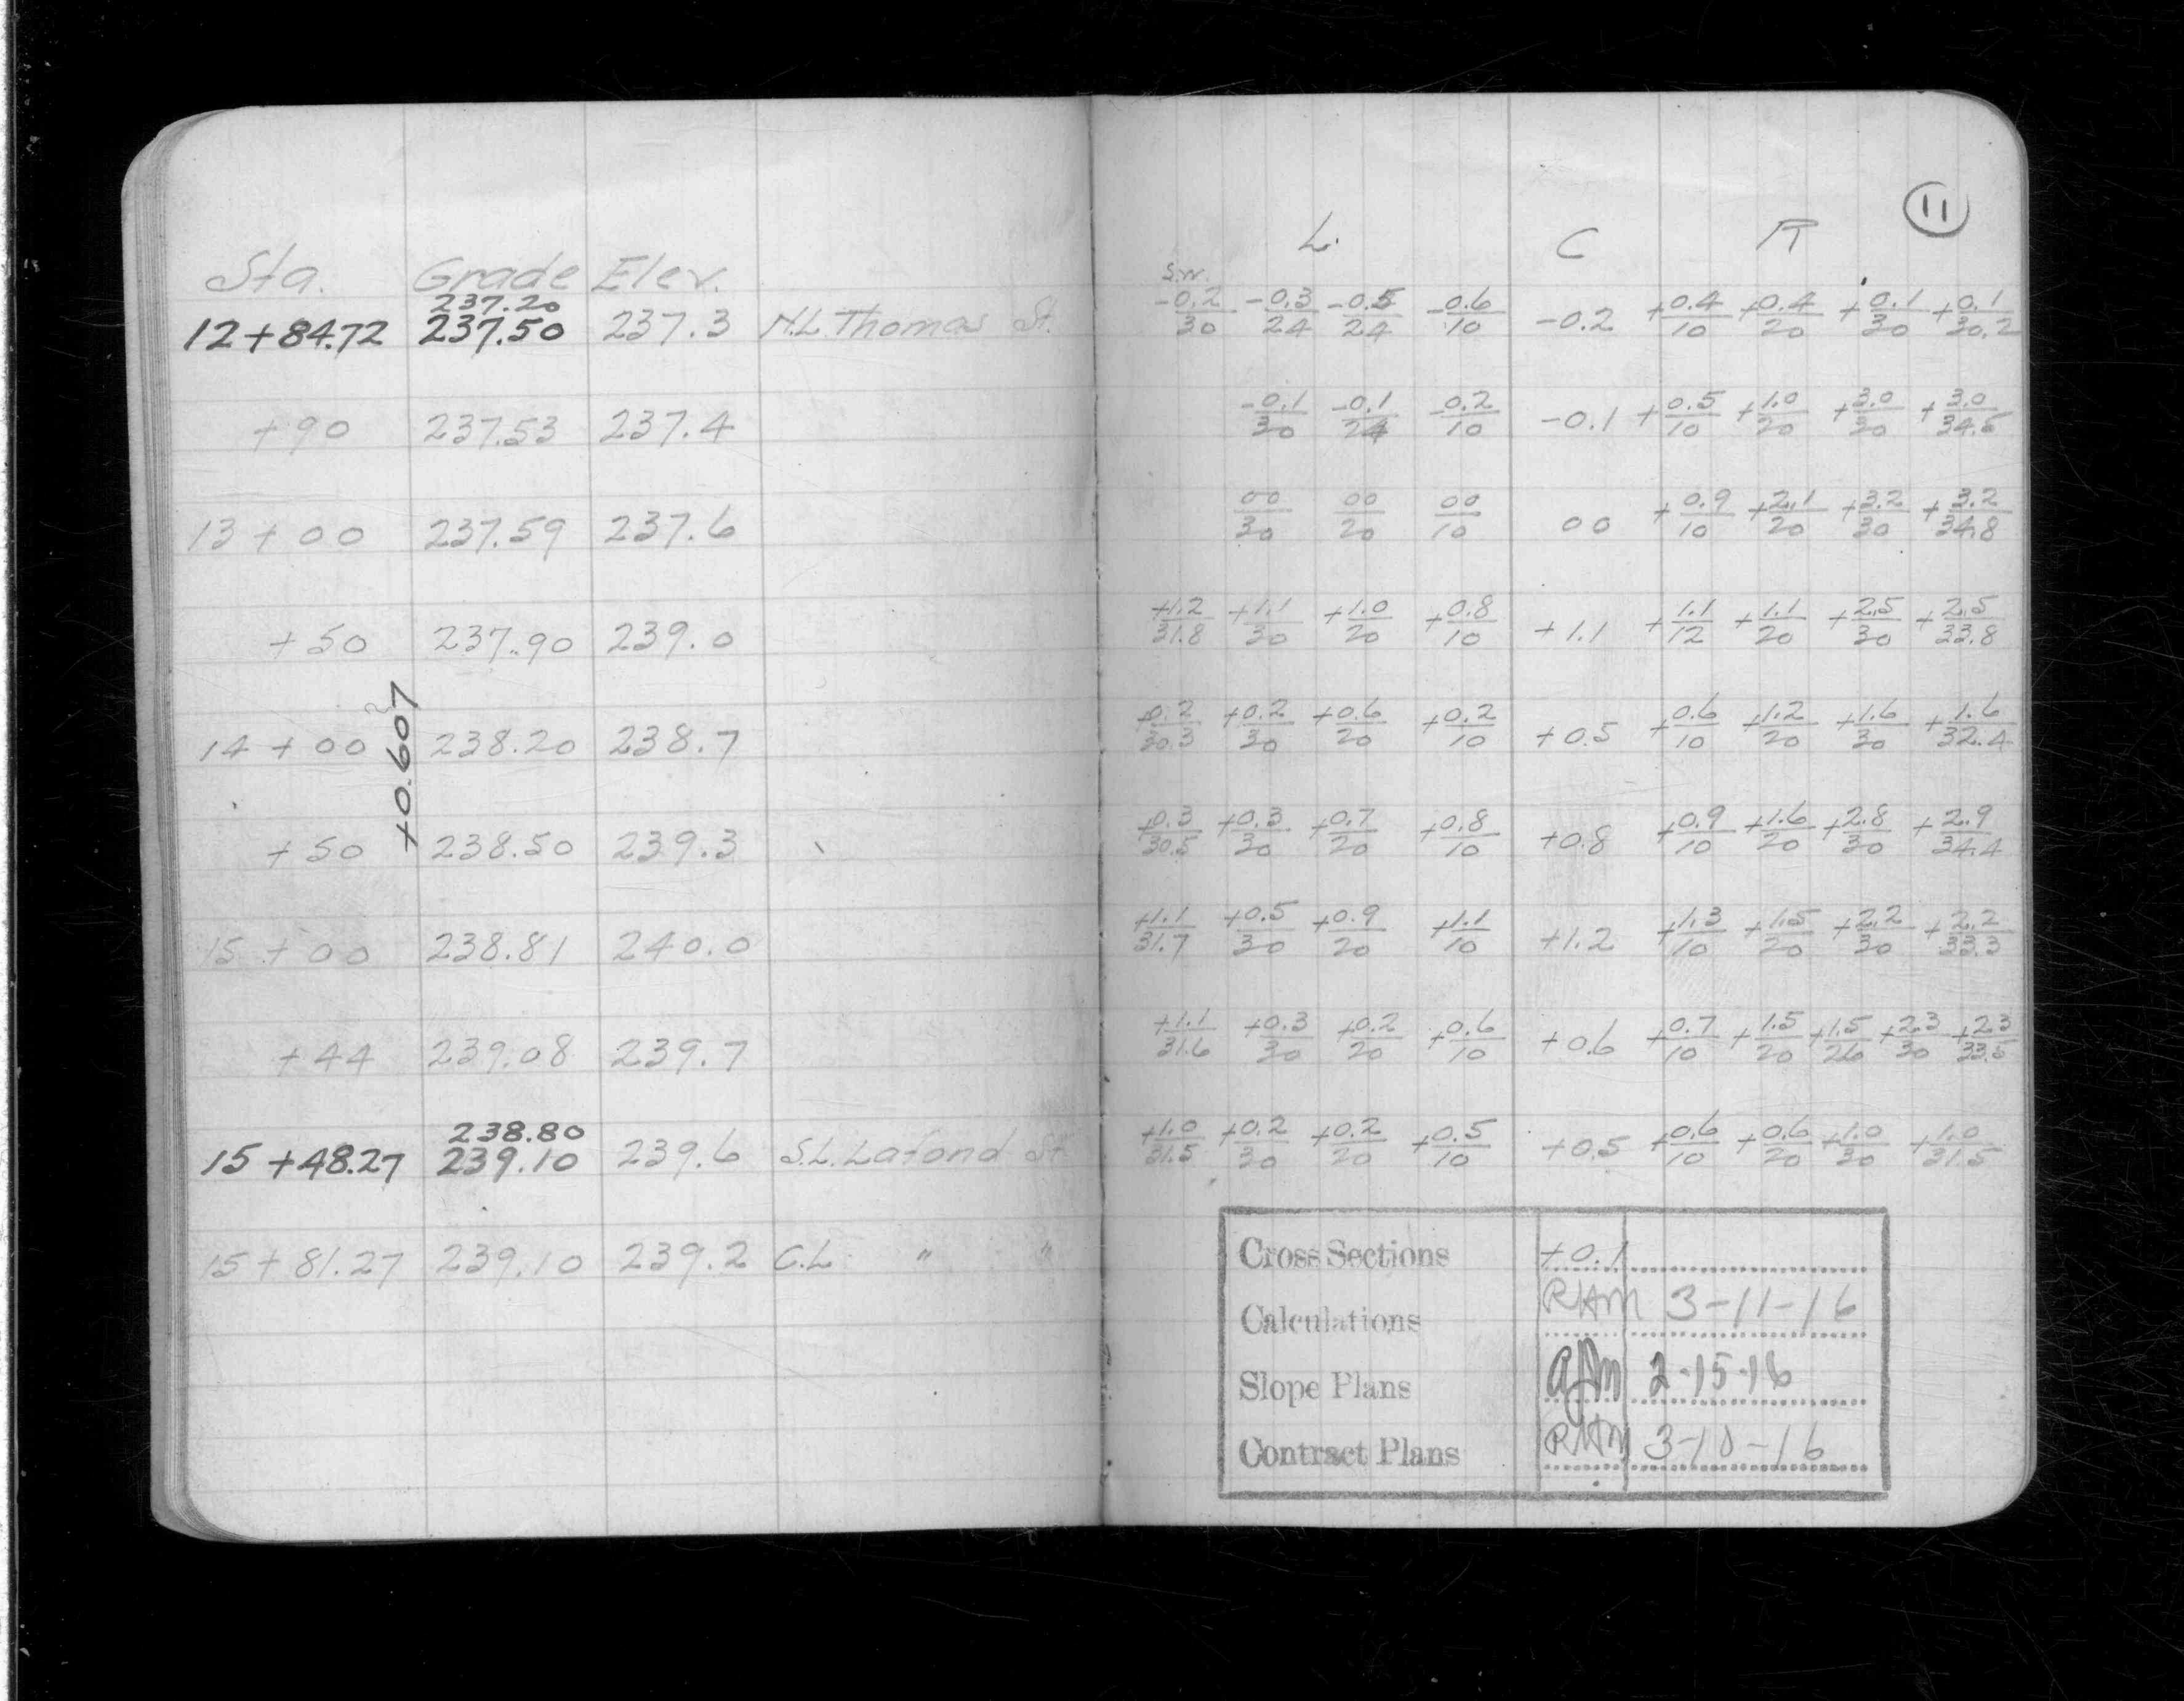 11
L. C R
Sta. Grade Elev.
S.W.
237.20
12+84.72 237.50 237.3 N.L. Thomas St. -0.2/30 -0.3/24 -0.5/24 -0.6/10 -0.2 +0.4/10 +0.4/20 +0.1/30 +0.1/30.2
+90 237.53 237.4 -0.1/30 -0.1/24 -0.2/10 -0.1 +0.5/10 +1.0/20 +3.0/30 +3.0/34.5
13+00 237.59 237.6 00/30 00/20 00/10 00 +0.9/10 +2.1/20 +3.2/30 +3.2/34.8
+50 237.90 239.0 +1.2/31.8 +1.1/30 +1.0/20 +0.8/10 +1.1 +1.1/12 +1.1/20 +2.5/30 +2.5/33.8
+0.607
14+00 238.20 238.7 +0.2/30.3 +0.2/30 +0.6/20 +0.2/10 +0.5 +0.6/10 +1.2/20 +1.6/30 +1.6/32.4
+50 238.50 239.3 +0.3/30.5 +0.3/30 +0.7/20 +0.8/10 +0.8 +0.9/10 +1.6/20 +2.8/30 +2.9/34.4
15+00 238.81 240.0 +1.1/31.7 +0.5/30 +0.9/20 +1.1/10 +1.2 +1.3/10 +1.5/20 +2.2/30 +2.2/33.3
+44 239.08 239.7 +1.1/31.6 +0.3/30 +0.2/20 +0.6/10 +0.6 +0.7/10 +1.5/20 +1.5/26 +2.3/30 +2.3/33.5
238.80
15+48.27 239.10 239.6 S.L. Lafond St +1.0/31.5 +0.2/30 +0.2/20 +0.5/10 +0.5 +0.6/10 +0.6/20 +1.0/30 +1.0/31.5
15+81.27 239.10 239.2 C.L. " " +0.1
Cross Sections
Calculations RAM 3-11-16
Slope Plans 2-15-16
Contract Plans RAM 3-10-16